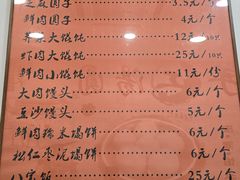 芝麻团子 3.5元/个
鲜肉团子 4元/个
荠菜大馄饨 12元/10只
虾肉大馄饨 25元/10只
鲜肉小馄饨 11元/份
大肉馒头 6元/个
豆沙馒头 5元/个
鲜肉糯米塌饼 6元/个
松仁枣泥塌饼 6元/个
八宝饭